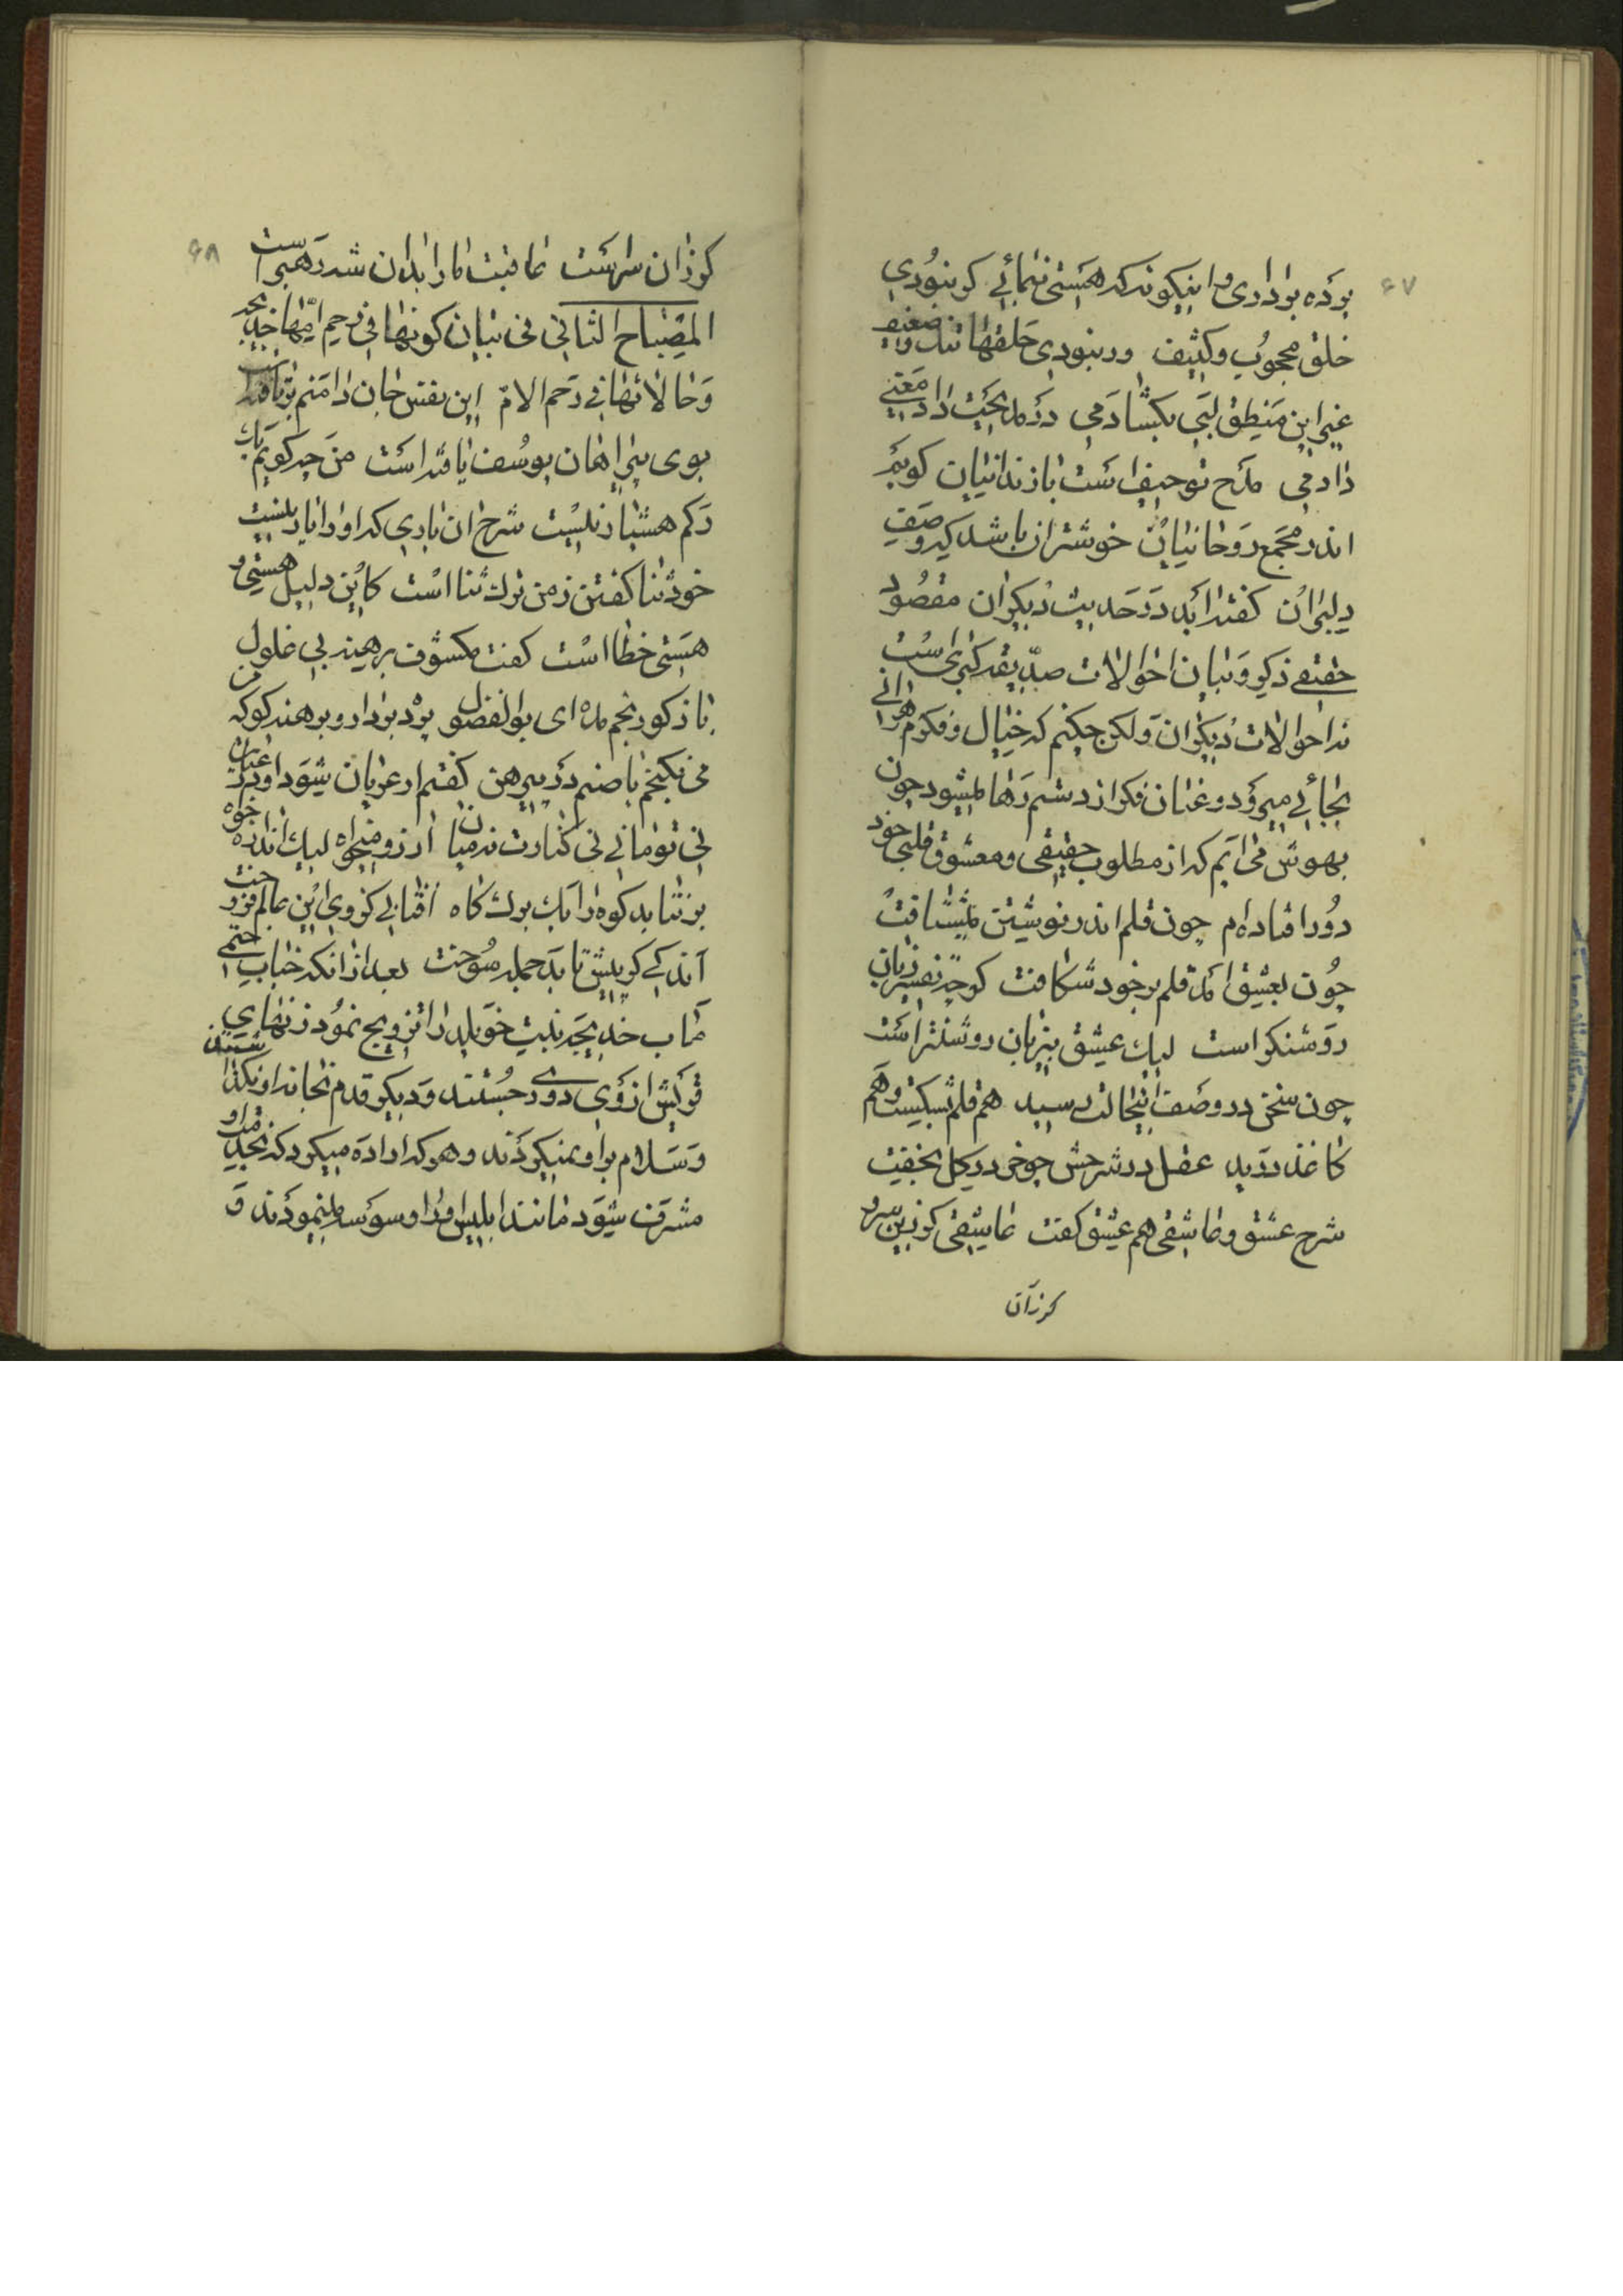 ۶۷
بوده برداری و اینگونه که هستی ننمائی گر نبودی
خلق محجوب و کثیف ور نبودی حلقها تنک و ضعیف
غیر این منطق لبی بکشادمی در مدیحت داد معنی
دادمی مدح تو حیف است با زندانیان گویم
اندر مجمع روحانیان خوشتر ان باشد که وصف
دلبران گفته اید در حدیث دیگران مقصود
حقیقی ذکر و بیان احوالات صدیقه کبری است
نه احوالات دیگران ولکن چکنم که خیال و فکرم هر انی
بجائی میرود و عنان فکر از دستم رها میشود چون
بهوش می ایم که از مطلوب حقیقی و معشوق قلبی خود
دور افتاده ام چون قلم اندر نوشتن میشتافت
چون بعشق امد قلم بر خود شکافت گرچه تفسیر زبان
روشنگر است لیک عشق بیزبان روشنتر است
چون سخن در وصف اینحالت رسید هم قلم بشکست و هم
کاغذ درید عقل در شرحش چو خر در گل بخفت
شرح عشق و عاشقی هم عشق گفت عاشقی گر زین سر و
کرزان
۶۸
گر زان سر است عاقبت ما را بدان شه رهبر است
المصباح الثانی فی بیان کونها فی رحم امها خدیجه
و حالاتها فی رحم الام این نفس جان دامنم برتافته است
بوی پیراهان یوسف یافته است من چه گویم یک
رکم هشیار نیست شرح ان یاری که او را یار نیست
خود ثنا گفتن ز من ترک ثنا است کاین دلیل هستی و
هستی خطا است گفت مکشوف برهنه بی غلول
باز گو رنجم مده ای بو الفضول پرده بردار و برهنه گو که
من می نگنجم با صنم در پیرهن گفتم ار عریان شود او در عیان
نی تو مانی نی کنارت نه میان ارزو میخواه لیک اندازه خواه
بر نتابد کوه را یک برک کاه افتابی کز وی این عالم فروخت
اندکی گر پیش تابد جمله سوخت بعد از انکه جناب ختمی
ماب خدیجه بنت خویلد را تزویج نمود زنهای
قریش از وی دوری جستند و دیگر قدم بخانه او نگذاشتند
و سلام بر او نمیکردند و هر که اراده میکرد که بخدمت او
مشرف شود مانند ابلیس او را وسوسه مینمودند و